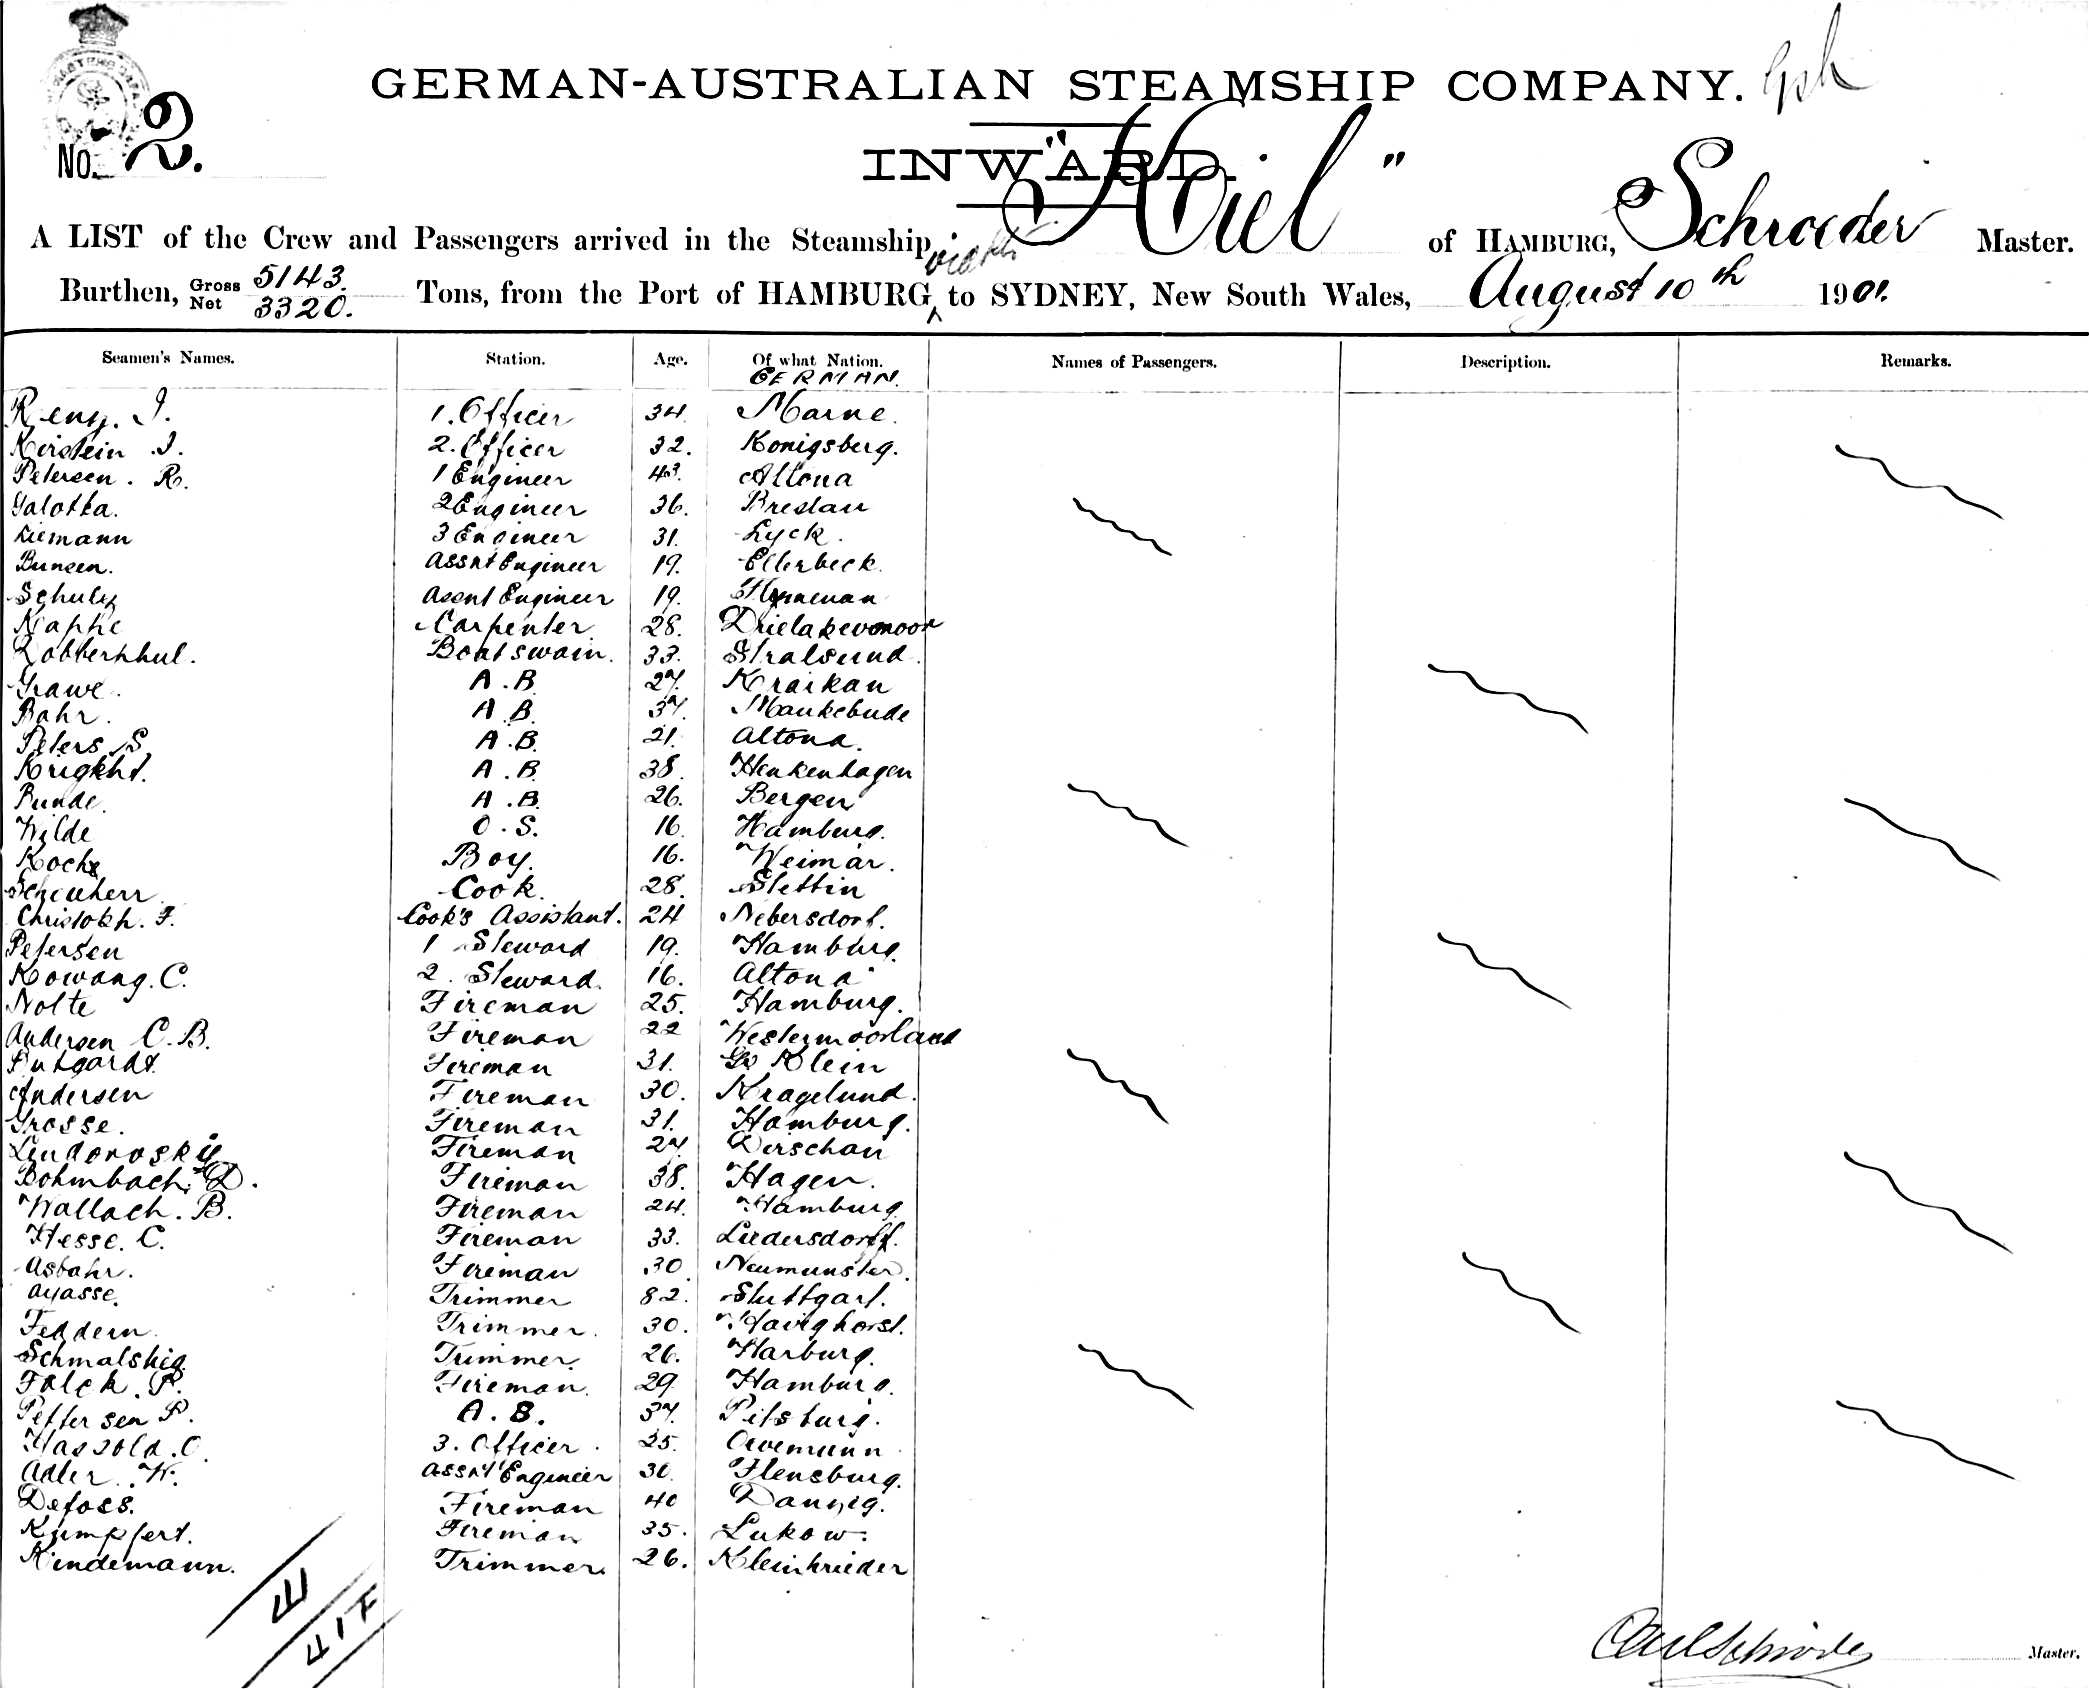 GERMAN-AUSTRALIAN STEAMSHIP COMPANY.
No. 2.
INWARD.
A LIST of the Crew and Passengers arrived in the Steamship "Kiel" of HAMBURG, Schroeder Master.
Burthen, Gross 5143. Net 3320. Tons, from the Port of HAMBURG to SYDNEY, New South Wales, August 10th 1901.
Seamen's Names. Station. Age. Of what Nation. Names of Passengers. Description. Remarks.
GERMAN.
J. 1. Officer 34. Marne.
Kirstein J. 2. Officer 32. Konigsberg.
Petersen. R. 1 Engineer 43. Altona
Galotka. 2 Engineer 36. Breslau
Liemann 3 Engineer 31. Lyck.
Bunsen. Assnt Engineer 19. Ellerbeck.
Schulz Assnt Engineer 19.
Naphe Carpenter 28. Drielakermoor
Boatswain. 33. Stralsund.
Grawe. A.B. 27. Kraikau
Bahr. A.B. 37. Maukebude
Peters S. A.B. 21. Altona.
Krigkht. A.B. 38. Henkenhagen
Bunde. A.B. 26. Bergen
Wilde O.S. 16. Hamburg.
Koch Boy. 16. Weimar.
Cook. 28. Stettin
Christoph. F. Cook's Assistant. 24 Nebersdorf.
Petersen 1 Steward 19. Hamburg.
Kowang. C. 2. Steward. 16. Altona
Nolte Fireman 25. Hamburg.
Andersen C.B. Fireman 22 Westermoorland
Putgardt. Fireman 31. Gr Klein
Andersen Fireman 30. Kragelund.
Grosse. Fireman 31. Hamburg.
Lindonosky Fireman 27. Dirschau
Bohmbach. D. Fireman 38. Hagen.
Wallach. B. Fireman 24. Hamburg.
Hesse. C. Fireman 33. Liedersdorff.
Asbahr. Fireman 30. Neumunster.
Ayasse. Trimmer 32. Stuttgart.
Feddern. Trimmer. 30. Havighorst.
Schmalshig. Trimmer. 26. Harburg.
Falck. P. Fireman. 29. Hamburg.
Petersen P. A.B. 37. Pitsburg.
Hassold. C. 3. Officer. 25.
Adler. W. Assnt Engineer 30. Flensburg.
Defoss. Fireman 40 Danzig.
Kumpfert. Fireman 35. Lukow.
Kindemann. Trimmer. 26. Kleinkrieder
E
41
Carl Schroder Master.